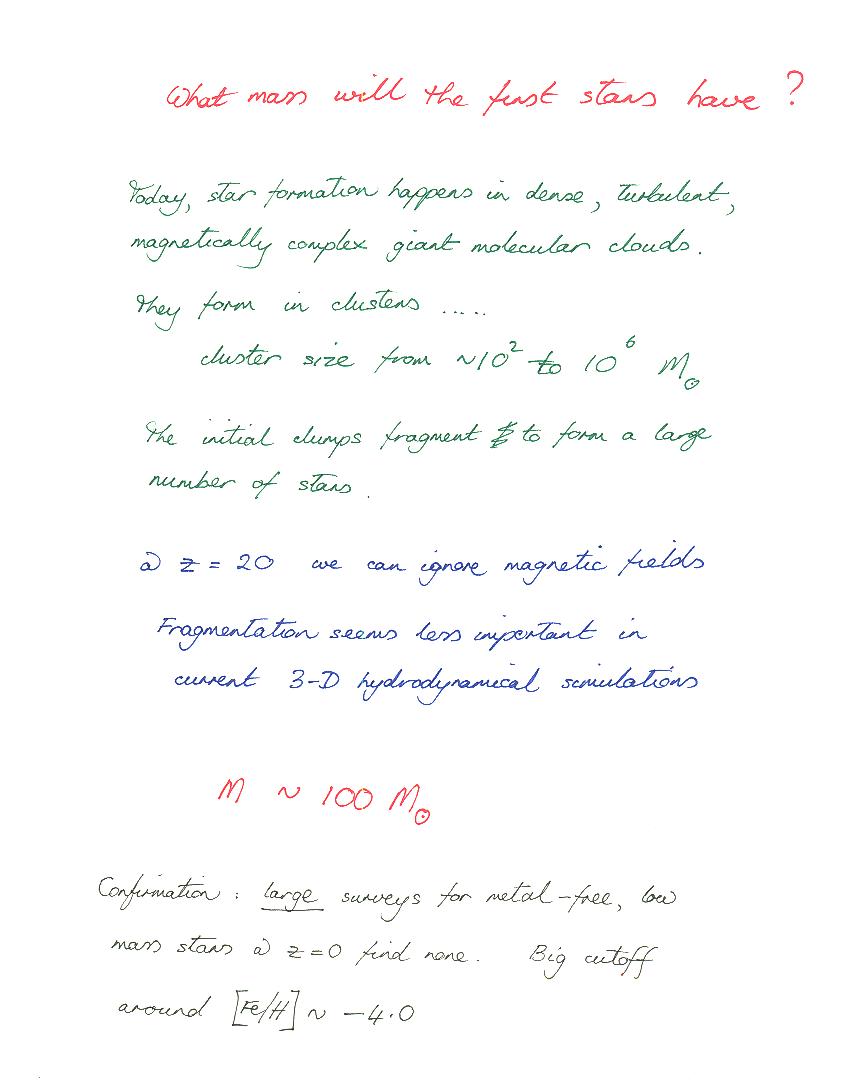 What mass will the first stars have ?
Today, star formation happens in dense, turbulent,
magnetically complex giant molecular clouds.
They form in clusters .....
cluster size from ~10² to 10⁶ M☉
The initial clumps fragment to form a large
number of stars.
@ z = 20 we can ignore magnetic fields
Fragmentation seems less important in
current 3-D hydrodynamical simulations
M ~ 100 M☉
Confirmation : large surveys for metal-free, low
mass stars @ z=0 find none. Big cutoff
around [Fe/H] ~ -4.0